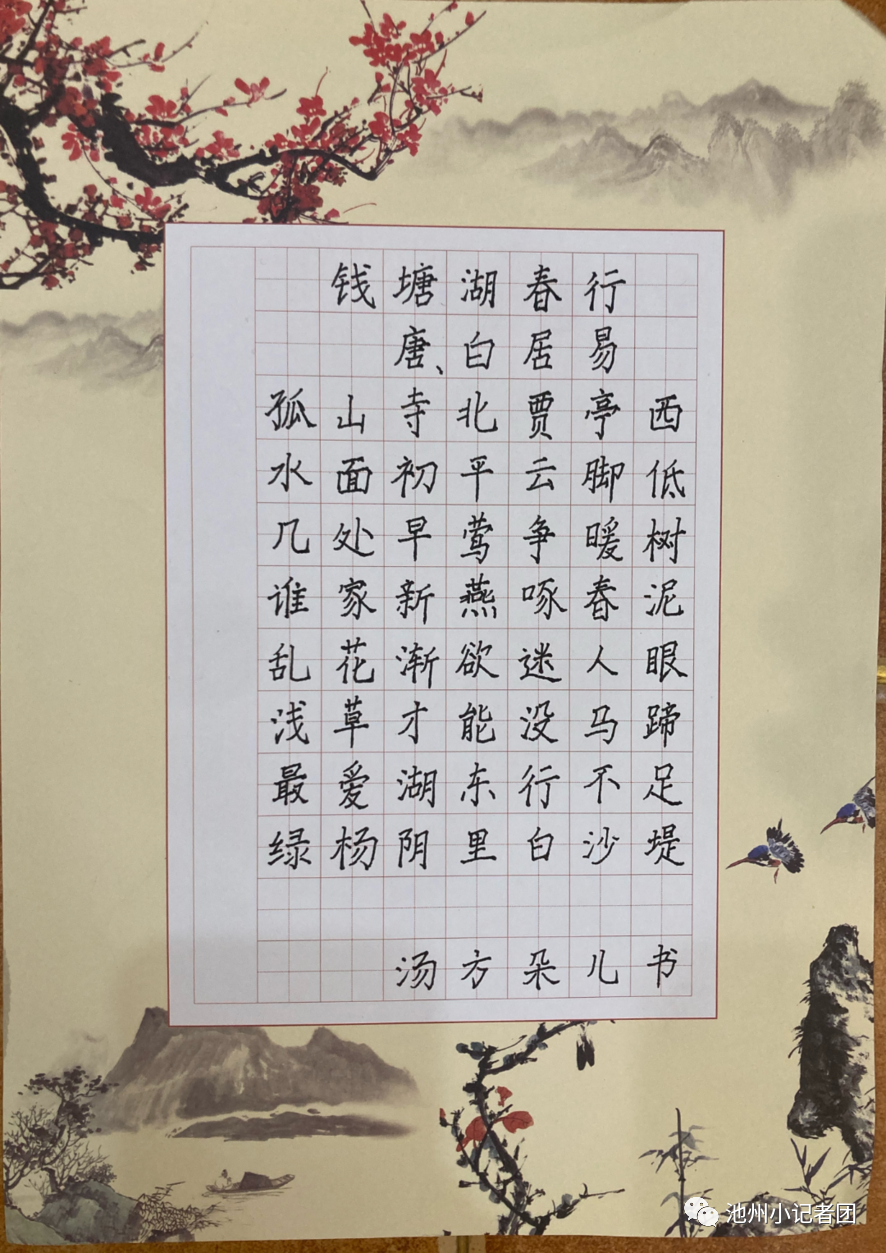 钱塘湖春行
唐、白居易
孤山寺北贾亭西
水面初平云脚低
几处早莺争暖树
谁家新燕啄春泥
乱花渐欲迷人眼
浅草才能没马蹄
最爱湖东行不足
绿杨阴里白沙堤
汤方朵儿书
池州小记者团